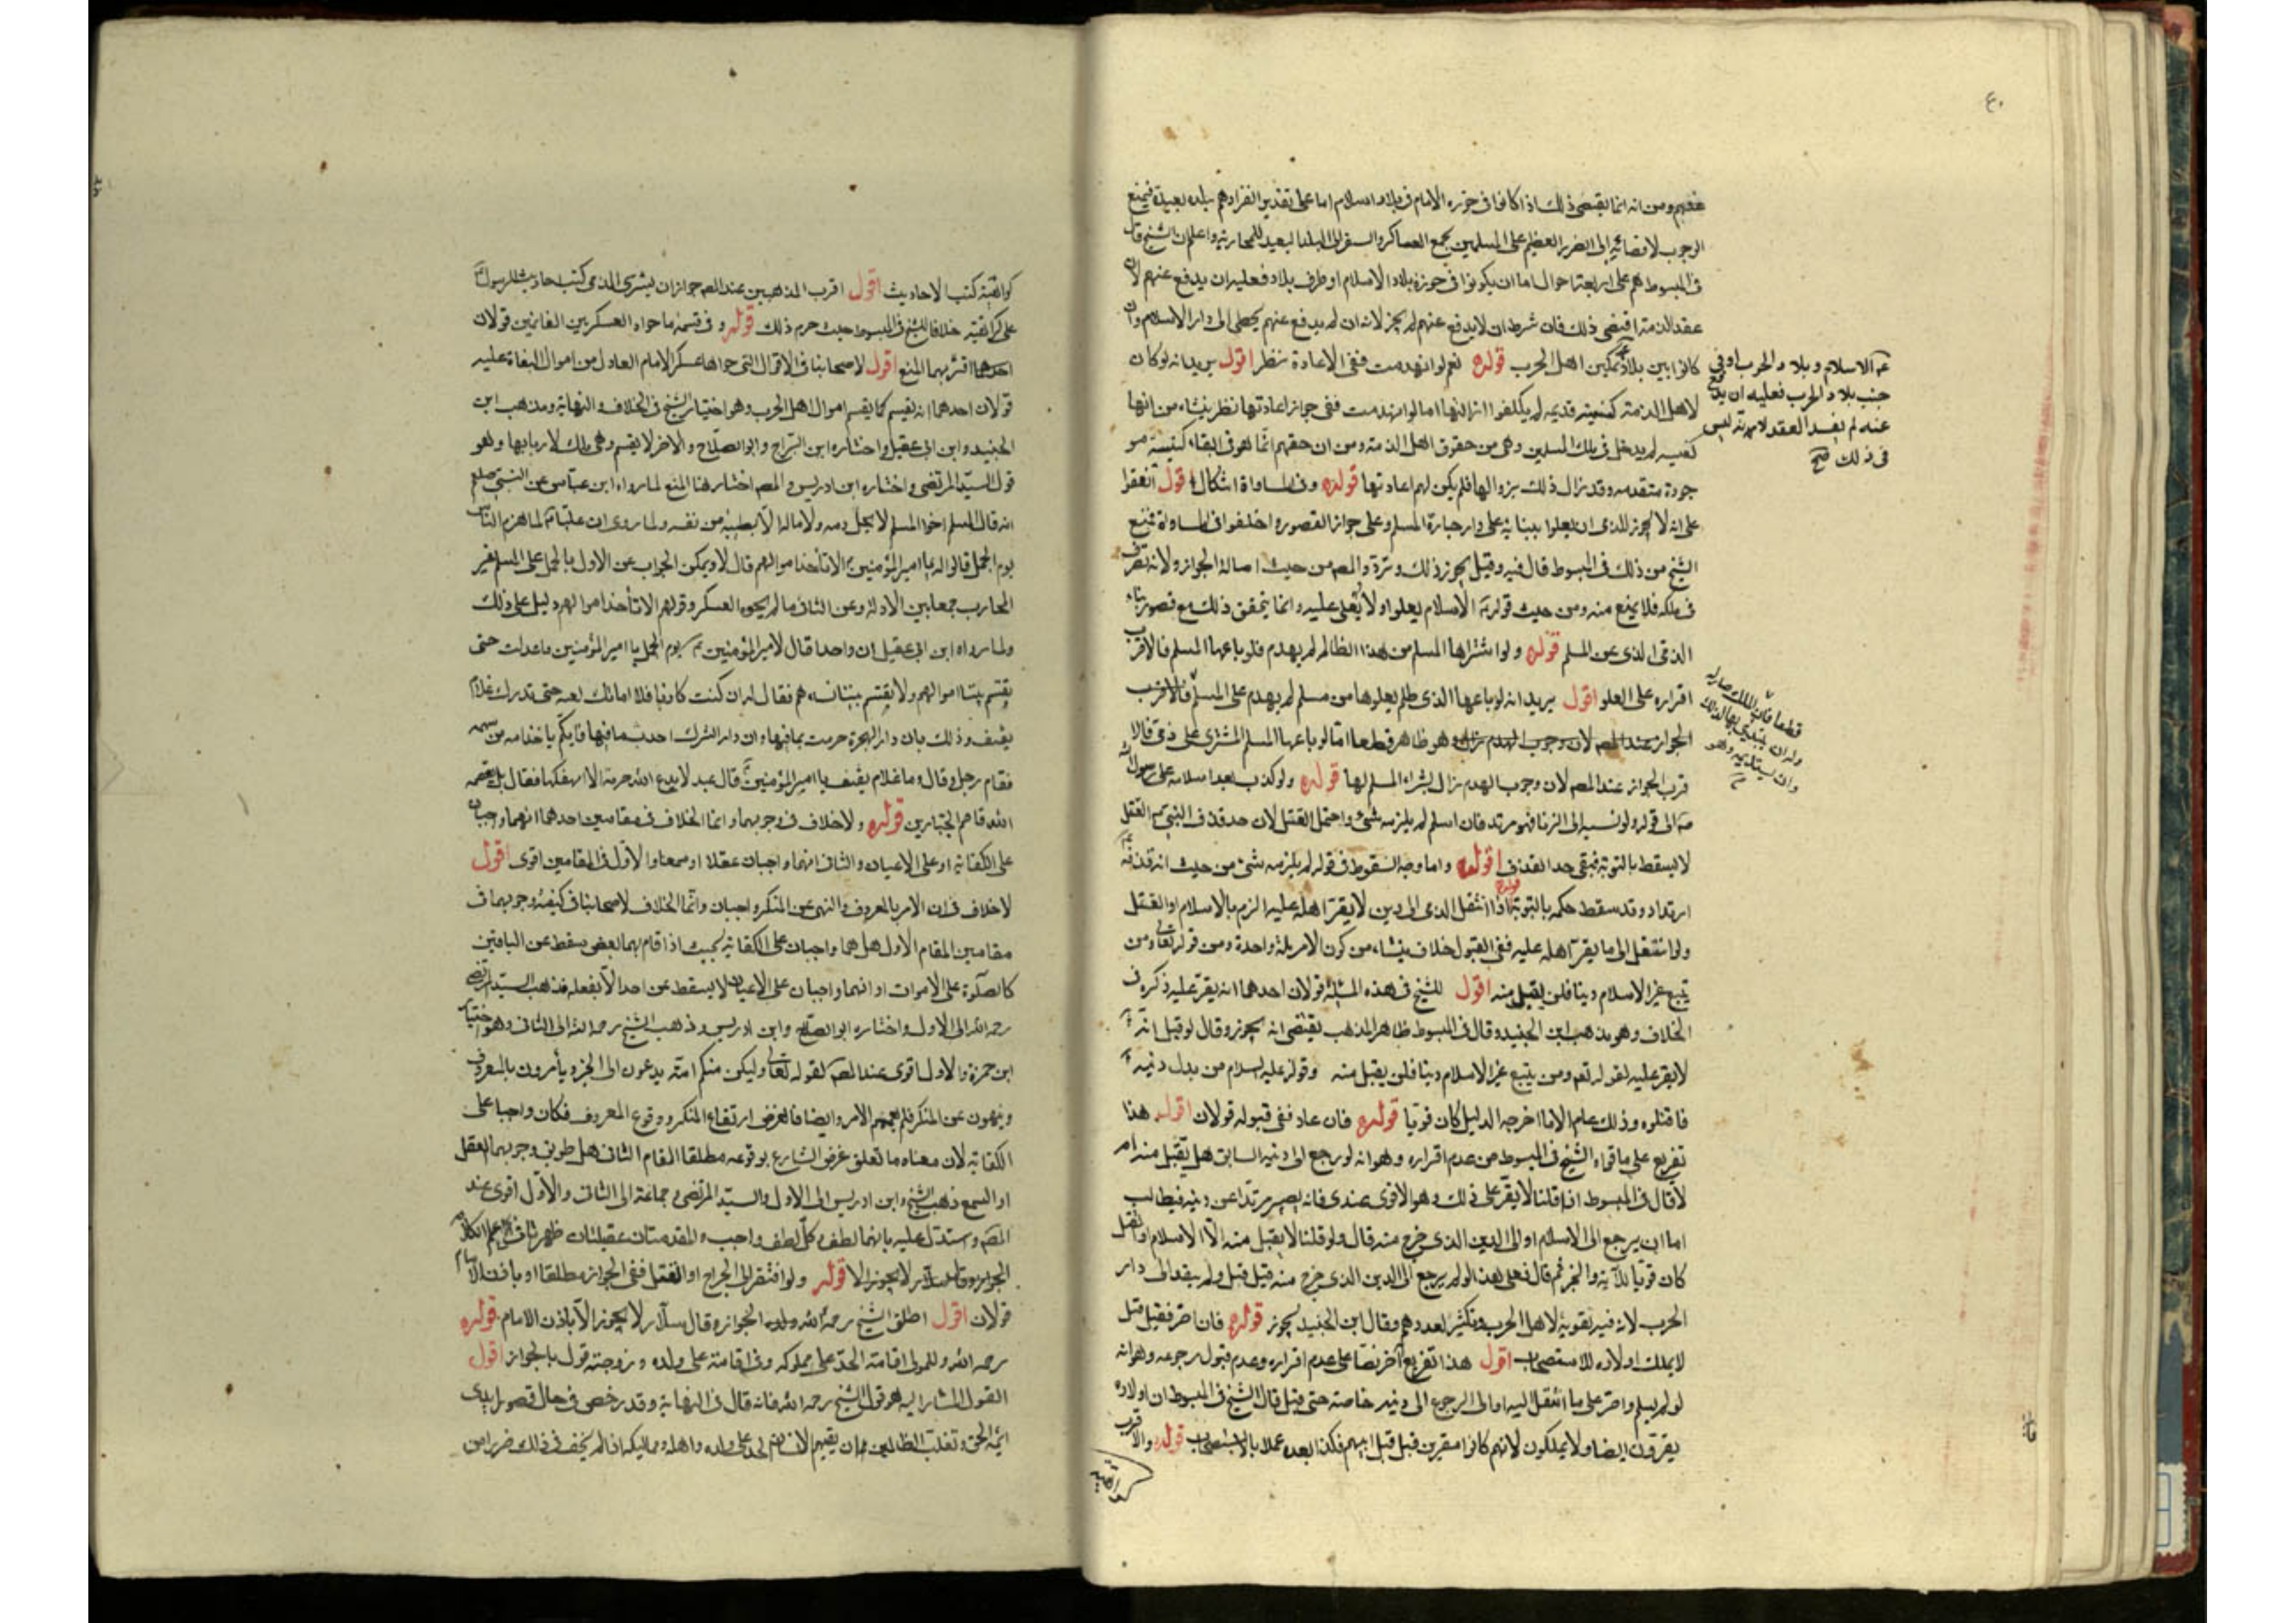 ٤٠
عنهم ومن انه انما يقتضى ذلك اذا كانوا فى حوزه الامام فى بلاد اسلام اما على تقدير انفرادهم ببلده بعيدة فيمنع
الوجوب لافضائه الى الضرر العظيم على المسلمين بجمع العساكر والسفر الى البلد البعيد للمحاربة واعلم ان الشيخ قال
فى المبسوط هم على اربعة احوال اما ان يكونوا فى حوزة بلاد الاسلام او طرف بلاد فعليه ان يدفع عنهم لان
عقد الذمة اقتضى ذلك فان شرط ان لا يدفع عنهم لم يجز لانه ان لم يدفع عنهم يخطى الى دار الاسلام وان
كانوا بين بلاد تمكين اهل الحرب قوله نعم لو انهدمت ففى الاعادة نظر اقول يريد انه لو كان
لاهل الذمة كنيسة قديمه لم يكلفوا ازالتها اما لو انهدمت ففى جواز اعادتها نظر ينشاء من انها
كنيسه لم يدخل فى ملك المسلمين وهى من حقوق اهل الذمة ومن ان حقهم انما هو فى ابقاء كنيسة مو
جودة متقدمه وقد زال ذلك بزوالها فلم يكن لهم اعادتها قوله وفى المساواة اشكال اقول اتفقوا
على انه لا يجوز للذمى ان يعلوا ببنايه على دار جاره المسلم وعلى جواز القصور واختلفوا فى المساواة فمنع
الشيخ من ذلك فى المبسوط قال فيه وقيل يجوز ذلك وتردد المصـ من حيث اصالة الجواز ولانه تصرف
فى ملكه فلا يمنع منه ومن حيث قوله ع الاسلام يعلو ولا يُعلى عليه وانما يتحقق ذلك مع قصور بناء
الذمى عن المسلم قوله ولو اشتراها المسلم من هذا الظالم لم يهدم فلو باعها المسلم فالاقرب
اقراره على العلو اقول يريد انه لو باعها الذى ظلم بعلوها من مسلم لم يهدم على المسلم فالاقرب
الجواز عند المصـ لان وجوب الهدم زال وهو ظاهر قطعا اما لو باعها المسلم المشترى على ذمى فالا
قرب الجواز عند المصـ لان وجوب الهدم زال بشراء المسلم لها قوله ولو كذب بعد اسلامه على رسول الله
ص الى قوله ولو نسبه الى الزنا فهو مرتد فان اسلم لم يلزمه شئ واحتمل القتل لان حد قذف النبى ص القتل
لا يسقط بالتوبة فبقى حد القذف اقول واما وجه السقوط فى قوله لم يلزمه شئ من حيث انه قذفه
ارتداد وقد سقط حكمه بالتوبة قوله واذا انتقل الذمى الى دين لا يقر اهله عليه الزم بالاسلام او القتل
ولو انتقل الى ما يقر اهله عليه ففى القبول خلاف ينشاء من كون الكفر ملة واحدة ومن قوله تعالى ومن
يتبع غير الاسلام دينا فلن يقبل منه اقول للشيخ فى هذه المسئلة قولان احدهما انه يقر عليه ذكره فى
الخلاف وهو مذهب ابن الجنيد وقال فى المبسوط ظاهر المذهب يقتضى انه يجوز وقال لو قيل انه
لا يقر عليه لقوله تعـ ومن يتبع غير الاسلام دينا فلن يقبل منه وقوله عليه السلام من بدل دينه
فاقتلوه وذلك عام الا ما اخرجه الدليل كان قويا قوله فان عاد ففى قبوله قولان اقول هذا
تفريع على ما قواه الشيخ فى المبسوط من عدم اقراره وهو انه لو رجع الى دينه السابق هل يقبل منه ام
لا قال فى المبسوط اذا قلنا لا يقر على ذلك وهو الاقوى عندى فانه يصير مرتدا عن دينه فيطالب
اما ان يرجع الى الاسلام او الى الدين الذى خرج منه قال ولو قلنا لا يقبل منه الا الاسلام او القتل
كان قويا للآية والخبر ثم قال فعلى هذا لو لم يرجع الى الدين الذى خرج منه قيل قتل ولم يبق له دار
الحرب لانه فيه تقوية لاهل الحرب وتكثير لعددهم وقال ابن الجنيد يجوز قوله فان اصر فقيل قتل
لا يملك اولاده للاستصحاب اقول هذا تفريع آخر نصا على عدم اقراره وعدم قبول رجوعه وهو انه
لو لم يسلم واصر على ما انتقل اليه او الى الرجوع الى دينه خاصة حتى قتل قال الشيخ فى المبسوط ان اولاده
يقرون ايضا ولا يملكون لانهم كانوا مقرين قبل قتل ابيهم فكذا بعده عملا بالاستصحاب قوله والاقرب
كراهية
عه الاسلام وبلاد الحرب او فى
جنب بلاد الحرب فعليه ان يدفع
عنه لم يفسد العقد لانه ليس
فى ذلك صح
قطعا فان الملك صار له
وله ان يبتدى بها
وان يستديمه وهو
كراهية كتب الاحاديث اقول اقرب المذهبين عند المصـ جواز ان يشترى الذمى كتب احاديث الرسول
على كراهية خلافا للشيخ فى المبسوط حيث حرم ذلك قوله وفى قسمة ما حواه العسكر بين الغانمين قولان
احدهما اقربهما المنع اقول لاصحابنا فى الاموال التى حواها عسكر الامام العادل من اموال البغاة عليه
قولان احدهما انه يقسم كما يقسم اموال اهل الحرب وهو اختيار الشيخ فى الخلاف والنهاية ومذهب ابن
الجنيد وابن ابى عقيل واختاره ابن البراج وابو الصلاح والاخر لا يقسم وهى ملك لاربابها وهو
قول السيد المرتضى واختاره ابن ادريس والمصـ اختار هنا المنع لما رواه ابن عباس عن النبى صلعم
انه قال المسلم اخو المسلم لا يحل دمه ولا ماله الا بطيبة من نفسه ولما روى ان عليا ع لما هزم الناس
يوم الجمل قالوا له يا امير المؤمنين الا تأخذ اموالهم قال لا ويمكن الجواب عن الاول بالحمل على المسلم غير
المحارب جمعا بين الادلة وعن الثانى ما لم يحوه العسكر وقولهم الا تأخذ اموالهم دليل على ذلك
ولما رواه ابن ابى عقيل ان واحدا قال لامير المؤمنين ع يوم الجمل يا امير المؤمنين ما عدلت حتى
يقسم بيننا اموالهم ولا يقسم بيننا نساءهم فقال له ان كنت كاذبا فلا اماتك الله حتى تدرك غلام
ثقيف وذلك بان دار الهجرة حرمت بما فيها وان دار الشرك احدث ما فيها فايكم ياخذ امه من سهمه
فقام رجل وقال وما غلام ثقيف يا امير المؤمنين قال عبد لا يدع الله حرمة الا انهتكها فقال يقصمه
الله قاصم الجبارين قوله ولا خلاف فى وجوبهما وانما الخلاف فى مقامين احدهما انهما واجبان
على الكفاية او على الاعيان والثانى انهما واجبان عقلا او سمعا والاول فى المقامين اقوى اقول
لا خلاف فى ان الامر بالمعروف والنهى عن المنكر واجبان وانما الخلاف لاصحابنا فى كيفية وجوبهما فى
مقامين المقام الاول هل هما واجبان على الكفاية بحيث اذا قام بهما البعض سقط عن الباقين
كالصلوة على الاموات او انهما واجبان على الاعيان لا يسقط عن احد الا بفعله فذهب السيد المرتضى
رحمه الله الى الاول واختاره ابو الصلاح وابن ادريس وذهب الشيخ رحمه الله الى الثانى وهو اختيار
ابن حمزة والاول اقوى عند المصـ لقوله تعالى وليكن منكم امة يدعون الى الخير ويأمرون بالمعروف
وينهون عن المنكر فلم يعمهم الامر وايضا فالغرض ارتفاع المنكر ووقوع المعروف فكان واجبا على
الكفاية لان معناه ما تعلق غرض الشارع بوقوعه مطلقا المقام الثانى هل طريق وجوبهما العقل
او السمع ذهب الشيخ وابن ادريس الى الاول والسيد المرتضى وجماعة الى الثانى والاول اقوى عند
المصـ واستدل عليه بانهما لطف وكل لطف واجب والمقدمتان عقليتان ظهر ثانى علم الكلام
الجواز وقال سلار لا يجوز الا قوله ولو افتقر الى الجراح او القتل ففى الجواز مطلقا او باذن الامام
قولان اقول اطلق الشيخ رحمه الله ولده الجواز وقال سلار لا يجوز الا باذن الامام قوله
رحمه الله وللمولى اقامة الحد على مملوكه وفى اقامته على ولده وزوجته قول بالجواز اقول
القول المشار اليه هو قول الشيخ رحمه الله فانه قال فى النهاية وقد رخص فى حال قصور ايدى
ائمة الحق وتغلب الظالمين ان يقيم الانسان الحد على ولده واهله ومماليكه اذا لم يخف فى ذلك ضررا من